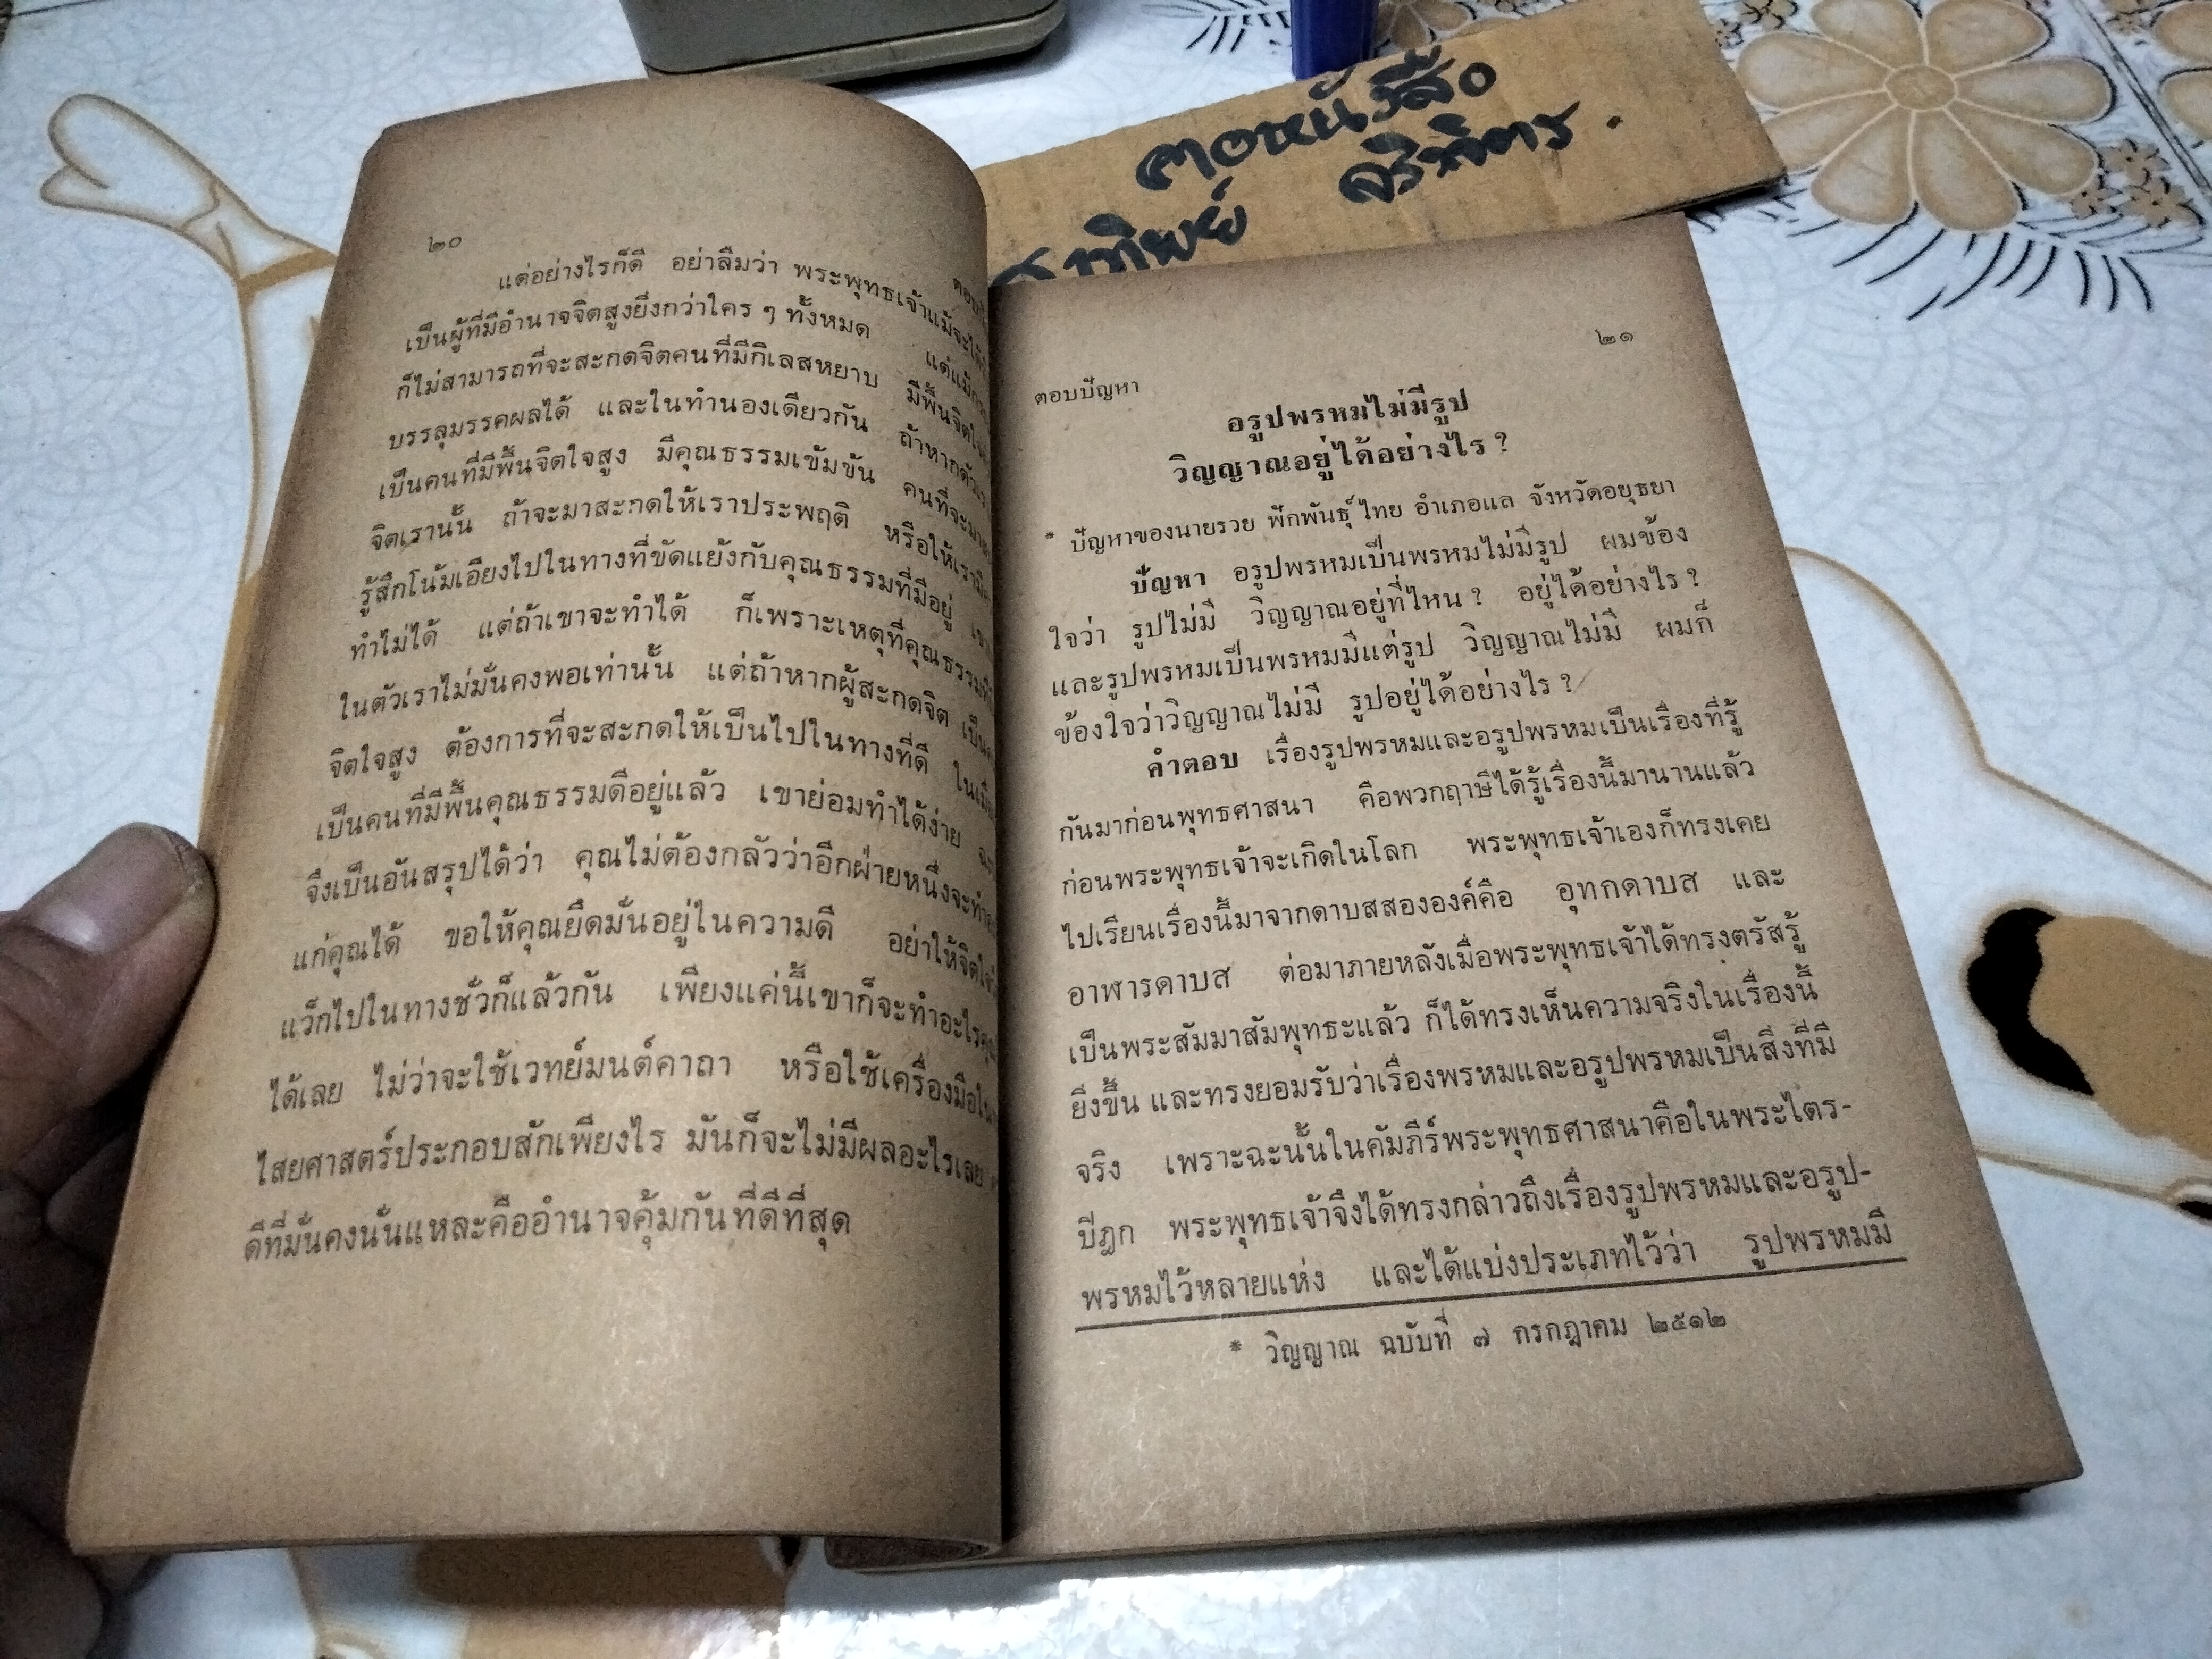 คอหนังสือ
ทิพย์ จริจิตร.
๒๐
แต่อย่างไรก็ดี อย่าลืมว่า พระพุทธเจ้าแม้จะ
เป็นผู้ที่มีอำนาจจิตสูงยิ่งกว่าใคร ๆ ทั้งหมด
ก็ไม่สามารถที่จะสะกดจิตคนที่มีกิเลสหยาบ มีพื้นจิต
บรรลุมรรคผลได้ และในทำนองเดียวกัน ถ้าหาก
เป็นคนที่มีพื้นจิตใจสูง มีคุณธรรมเข้มข้น คนที่จะ
จิตเรานั้น ถ้าจะมาสะกดให้เราประพฤติ หรือให้เรา
รู้สึกโน้มเอียงไปในทางที่ขัดแย้งกับคุณธรรมที่มีอยู่
ทำไม่ได้ แต่ถ้าเขาจะทำได้ ก็เพราะเหตุที่คุณธรรม
ในตัวเราไม่มั่นคงพอเท่านั้น แต่ถ้าหากผู้สะกดจิต
จิตใจสูง ต้องการที่จะสะกดให้เป็นไปในทางที่ดี
เป็นคนที่มีพื้นคุณธรรมดีอยู่แล้ว เขาย่อมทำได้ง่าย
จึงเป็นอันสรุปได้ว่า คุณไม่ต้องกลัวว่าอีกฝ่ายหนึ่งจะ
แก่คุณได้ ขอให้คุณยึดมั่นอยู่ในความดี อย่าให้จิต
แว็กไปในทางชั่วก็แล้วกัน เพียงแค่นี้เขาก็จะทำอะไร
ได้เลย ไม่ว่าจะใช้เวทย์มนต์คาถา หรือใช้เครื่องมือ
ไสยศาสตร์ประกอบสักเพียงไร มันก็จะไม่มีผลอะไรเลย
ดีที่มั่นคงนั่นแหละคืออำนาจคุ้มกันที่ดีที่สุด
๒๑
ตอบปัญหา
อรูปพรหมไม่มีรูป
วิญญาณอยู่ได้อย่างไร ?
* ปัญหาของนายรวย ฟักพันธุ์ไทย อำเภอแล จังหวัดอยุธยา
ปัญหา อรูปพรหมเป็นพรหมไม่มีรูป ผมข้อง
ใจว่า รูปไม่มี วิญญาณอยู่ที่ไหน ? อยู่ได้อย่างไร ?
และรูปพรหมเป็นพรหมมีแต่รูป วิญญาณไม่มี ผมก็
ข้องใจว่าวิญญาณไม่มี รูปอยู่ได้อย่างไร ?
คำตอบ เรื่องรูปพรหมและอรูปพรหมเป็นเรื่องที่รู้
กันมาก่อนพุทธศาสนา คือพวกฤาษีได้รู้เรื่องนี้มานานแล้ว
ก่อนพระพุทธเจ้าจะเกิดในโลก พระพุทธเจ้าเองก็ทรงเคย
ไปเรียนเรื่องนี้มาจากดาบสสององค์คือ อุทกดาบส และ
อาฬารดาบส ต่อมาภายหลังเมื่อพระพุทธเจ้าได้ทรงตรัสรู้
เป็นพระสัมมาสัมพุทธะแล้ว ก็ได้ทรงเห็นความจริงในเรื่องนี้
ยิ่งขึ้น และทรงยอมรับว่าเรื่องพรหมและอรูปพรหมเป็นสิ่งที่มี
จริง เพราะฉะนั้นในคัมภีร์พระพุทธศาสนาคือในพระไตร-
ปิฎก พระพุทธเจ้าจึงได้ทรงกล่าวถึงเรื่องรูปพรหมและอรูป-
พรหมไว้หลายแห่ง และได้แบ่งประเภทไว้ว่า รูปพรหมมี
* วิญญาณ ฉบับที่ ๗ กรกฎาคม ๒๕๑๒